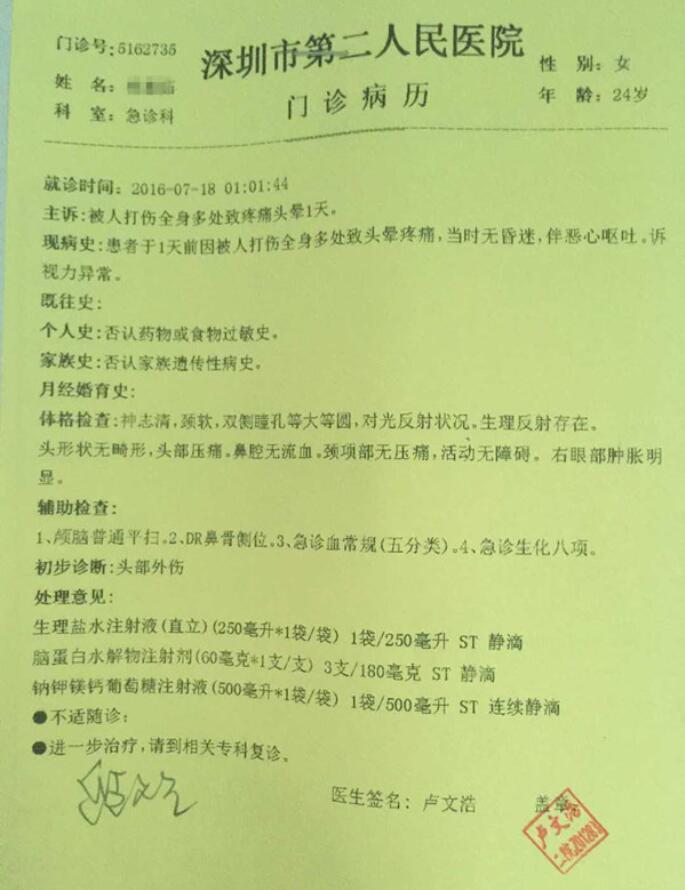 深圳市第二人民医院
门诊病历
门诊号:5162735
姓 名:
科 室:急诊科
性 别:女
年 龄:24岁
就诊时间:2016-07-18 01:01:44
主诉:被人打伤全身多处致疼痛头晕1天。
现病史:患者于1天前因被人打伤全身多处致头晕疼痛,当时无昏迷,伴恶心呕吐。诉
视力异常。
既往史:
个人史:否认药物或食物过敏史。
家族史:否认家族遗传性病史。
月经婚育史:
体格检查:神志清,颈软,双侧瞳孔等大等圆,对光反射状况。生理反射存在。
头形状无畸形,头部压痛。鼻腔无流血。颈项部无压痛,活动无障碍。右眼部肿胀明
显。
辅助检查:
1、颅脑普通平扫。2、DR鼻骨侧位。3、急诊血常规(五分类)。4、急诊生化八项。
初步诊断:头部外伤
处理意见:
生理盐水注射液(直立)(250毫升*1袋/袋) 1袋/250毫升 ST 静滴
脑蛋白水解物注射剂(60毫克*1支/支) 3支/180毫克 ST 静滴
钠钾镁钙葡萄糖注射液(500毫升*1袋/袋) 1袋/500毫升 ST 连续静滴
●不适随诊;
●进一步治疗,请到相关专科复诊。
医生签名:卢文浩 盖章:
卢文浩